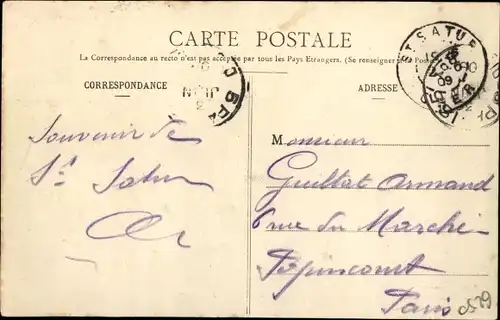 CARTE POSTALE
La Correspondance au recto n'est pas acceptée par tous les Pays Etrangers. (Se renseigner à la Poste
CORRESPONDANCE
ADRESSE
ST SATUR
Souvenir de
St Satur
Monsieur
Guillot Armand
6 rue du Marché
Popincourt
Paris
0529